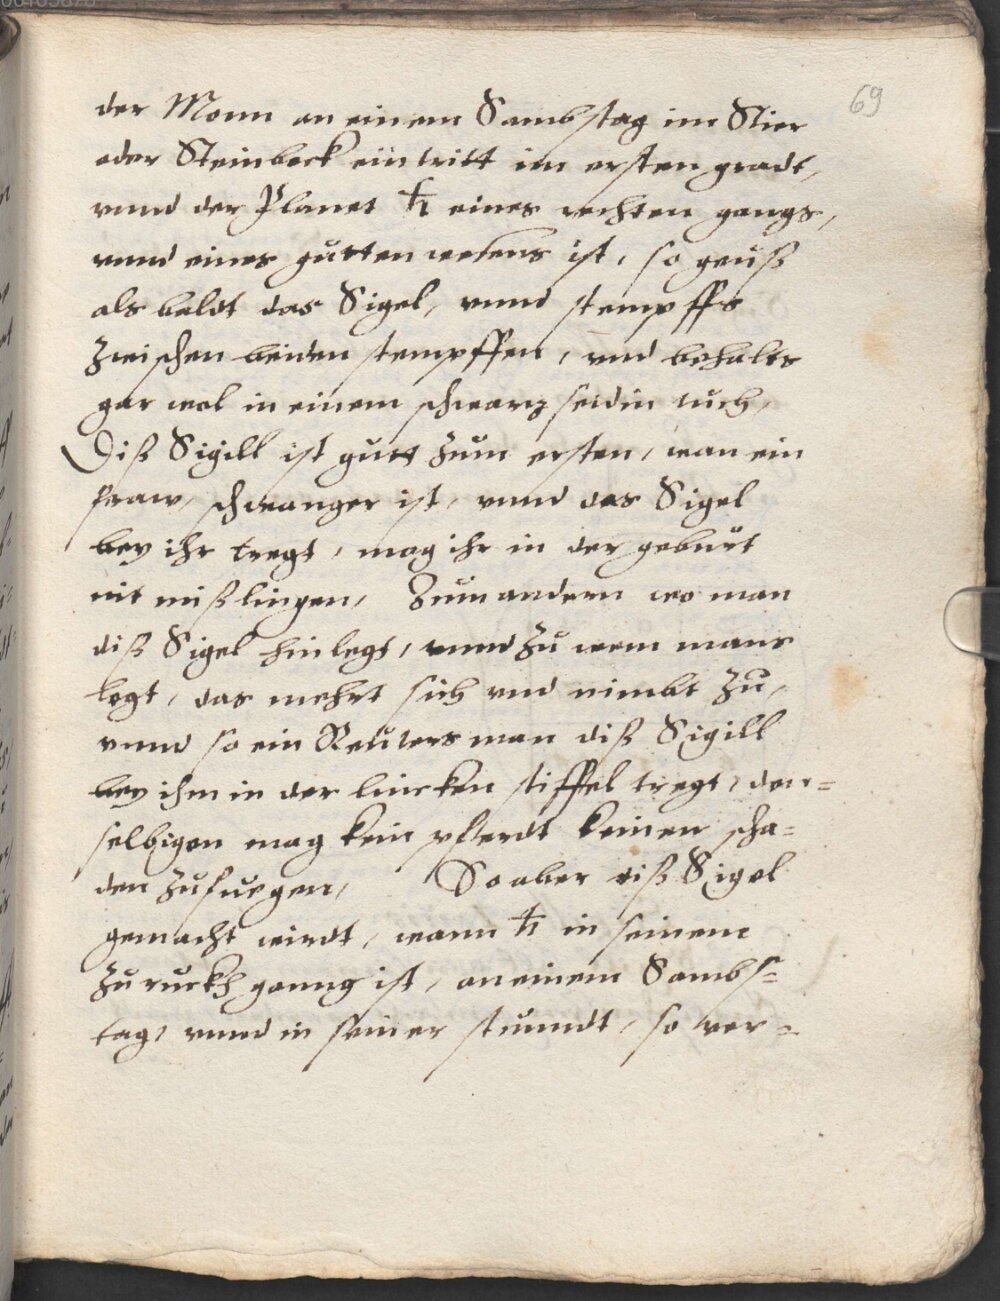 69
der Monn an einem Sambstag im Stier
oder Steinbock eintritt im ersten gradt,
vnnd der Planet ♄ eines rechten gangs,
vnnd eines gůtten wesens ist, so geuß
als baldt das Sigel, vnnd stempffs
zwischen beiden stempffen, vnd behalts
gar wol in einem schwarz seidin tůch,
Diß Sigill ist gůtt zům ersten, wan ein
fraw, schwanger ist, vnnd das Sigel
bey ihr tregt, mag ihr in der gebůrt
nit mißlingen, Zům andern wo man
diß Sigel hinlegt, vnnd zů wem mans
legt, das mehrt sich vnd nimbt zů,
vnnd so ein Reůters man diß Sigill
bey ihm in der lincken stiffel tregt, den=
selbigen mag kein pferdt keinen scha=
den zůfuegen, So aber diß Sigel
gemacht wirdt, wann ♄ in seinem
zůruckh ganng ist, an einem Sambs=
tag, vnnd in seiner stůnndt, so ver=